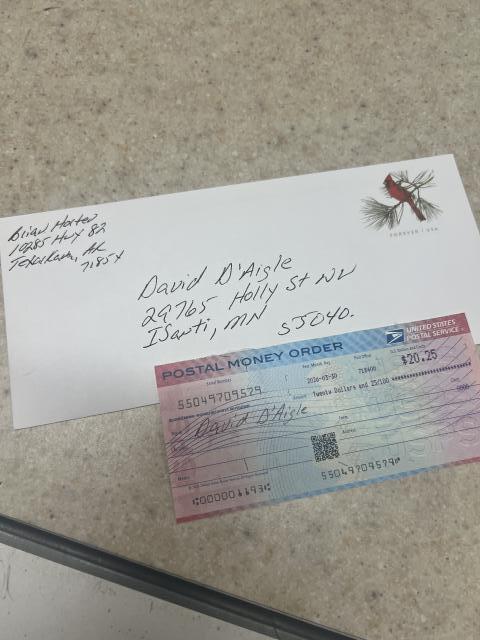 Brian Horten
10285 Hwy 82
Texarkana, AR
71854
FOREVER / USA
David D'Aigle
29765 Holly St NW
ISanti, MN
55040.
POSTAL MONEY ORDER
UNITED STATES
POSTAL SERVICE
Serial Number
Year, Month, Day
Post Office
U.S. Dollars and Cents
55049709579
2026-03-30
718400
$20.25
Amount
Twenty Dollars and 25/100
David D'Aigle
From
Address
Memo
55049709579
⑆000001193⑆